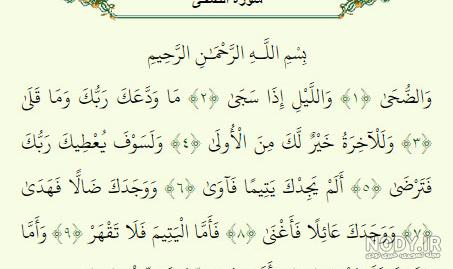 سورة الضحى
بِسْمِ اللَّـهِ الرَّحْمَـٰنِ الرَّحِيمِ
وَالضُّحَىٰ ﴿١﴾ وَاللَّيْلِ إِذَا سَجَىٰ ﴿٢﴾ مَا وَدَّعَكَ رَبُّكَ وَمَا قَلَىٰ
﴿٣﴾ وَلَلْآخِرَةُ خَيْرٌ لَّكَ مِنَ الْأُولَىٰ ﴿٤﴾ وَلَسَوْفَ يُعْطِيكَ رَبُّكَ
فَتَرْضَىٰ ﴿٥﴾ أَلَمْ يَجِدْكَ يَتِيمًا فَآوَىٰ ﴿٦﴾ وَوَجَدَكَ ضَالًّا فَهَدَىٰ
﴿٧﴾ وَوَجَدَكَ عَائِلًا فَأَغْنَىٰ ﴿٨﴾ فَأَمَّا الْيَتِيمَ فَلَا تَقْهَرْ ﴿٩﴾ وَأَمَّا
NODY.IR